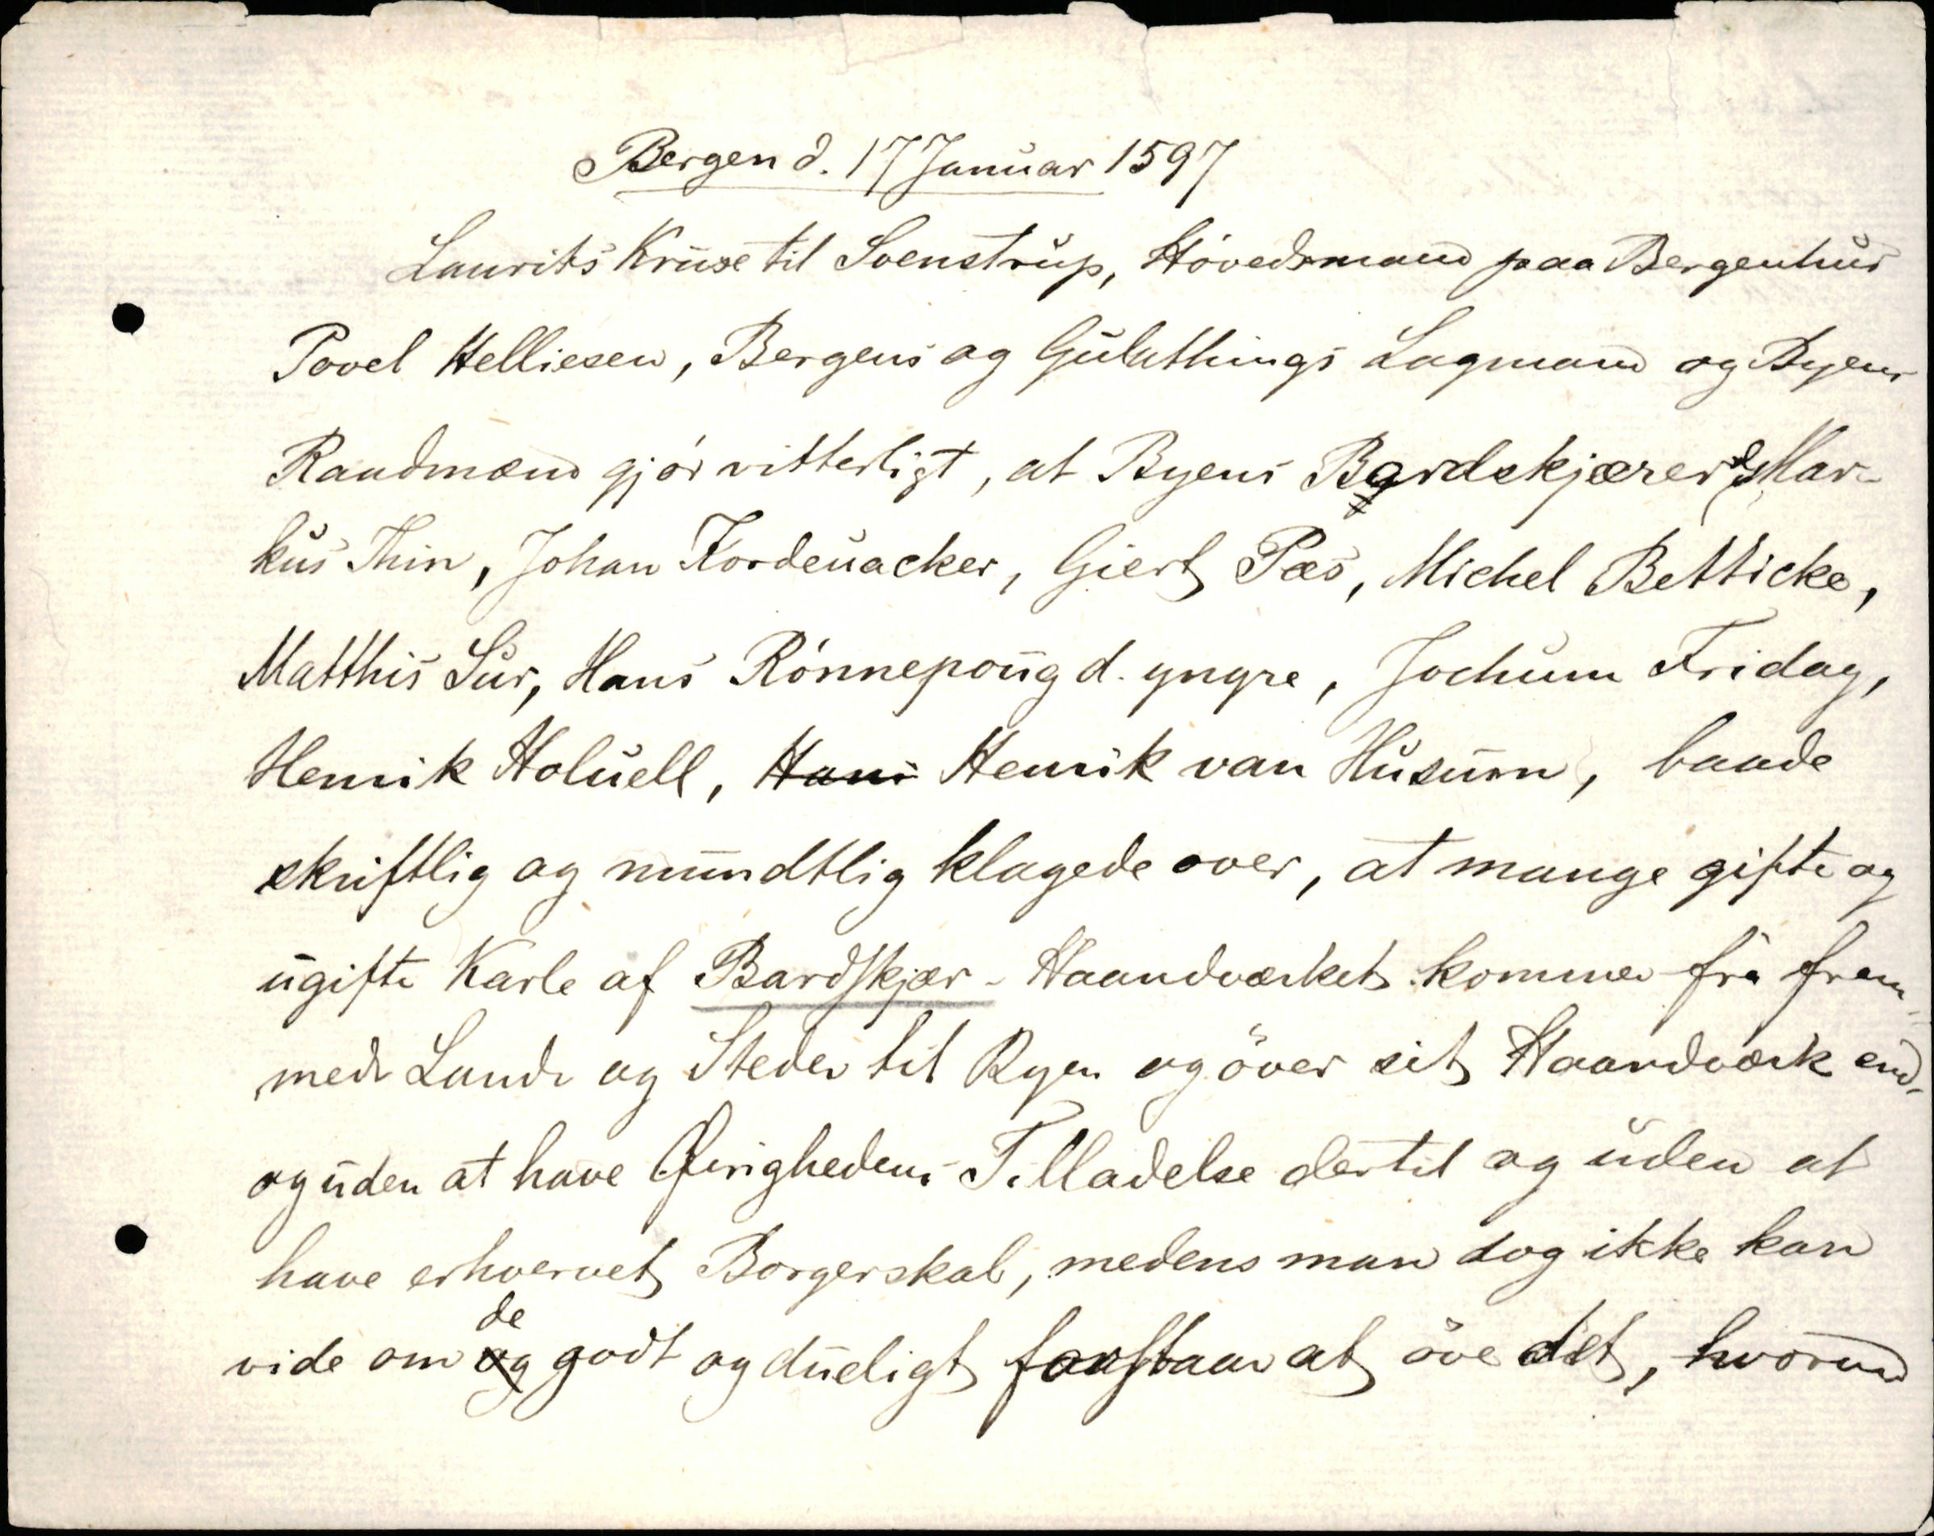 Bergen d. 17 Januar 1597
Laurits Kruse til Svenstrup, Hövedsmand paa Bergenhus
Povel Helliesen, Bergens og Gulathings Lagmand og Byens
Raadmænd gjör vitterligt, at Byens Bardskjærer Mar-
kus Thin, Johan Fordenacker, Giert Pæs, Michel Betticke,
Matthis Sur, Hans Rönnepoug d. yngre, Jochum Fridag,
Henrik Holuell, Hans Henrik van Husum, baade
skriftlig og mundtlig klagede over, at mange gifte og
ugifte Karle af Bardskjær-Haandværket kommer fra frem-
mede Lande og Steder til Byen og över sit Haandværk end-
og uden at have Øvrighedens Tilladelse dertil og uden at
have erhvervet Borgerskab, medens man dog ikke kan
vide om og de godt og dueligt forstaar at öve det, hvorved